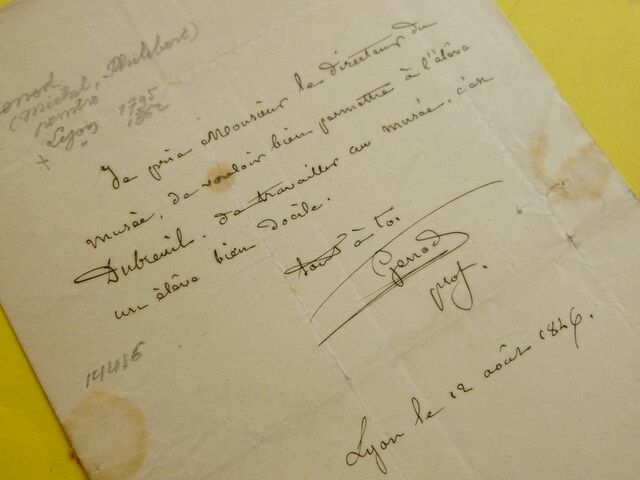 (Michel, Philibert)
peintre
Lyon 1795
" 1862
Je prie Monsieur le directeur du
musée, de vouloir bien permettre à l'élève
Dubreuil. de travailler au musée, c'est
un élève bien docile.
tout à toi.
Genod
prof.
Lyon le 12 août 1846.